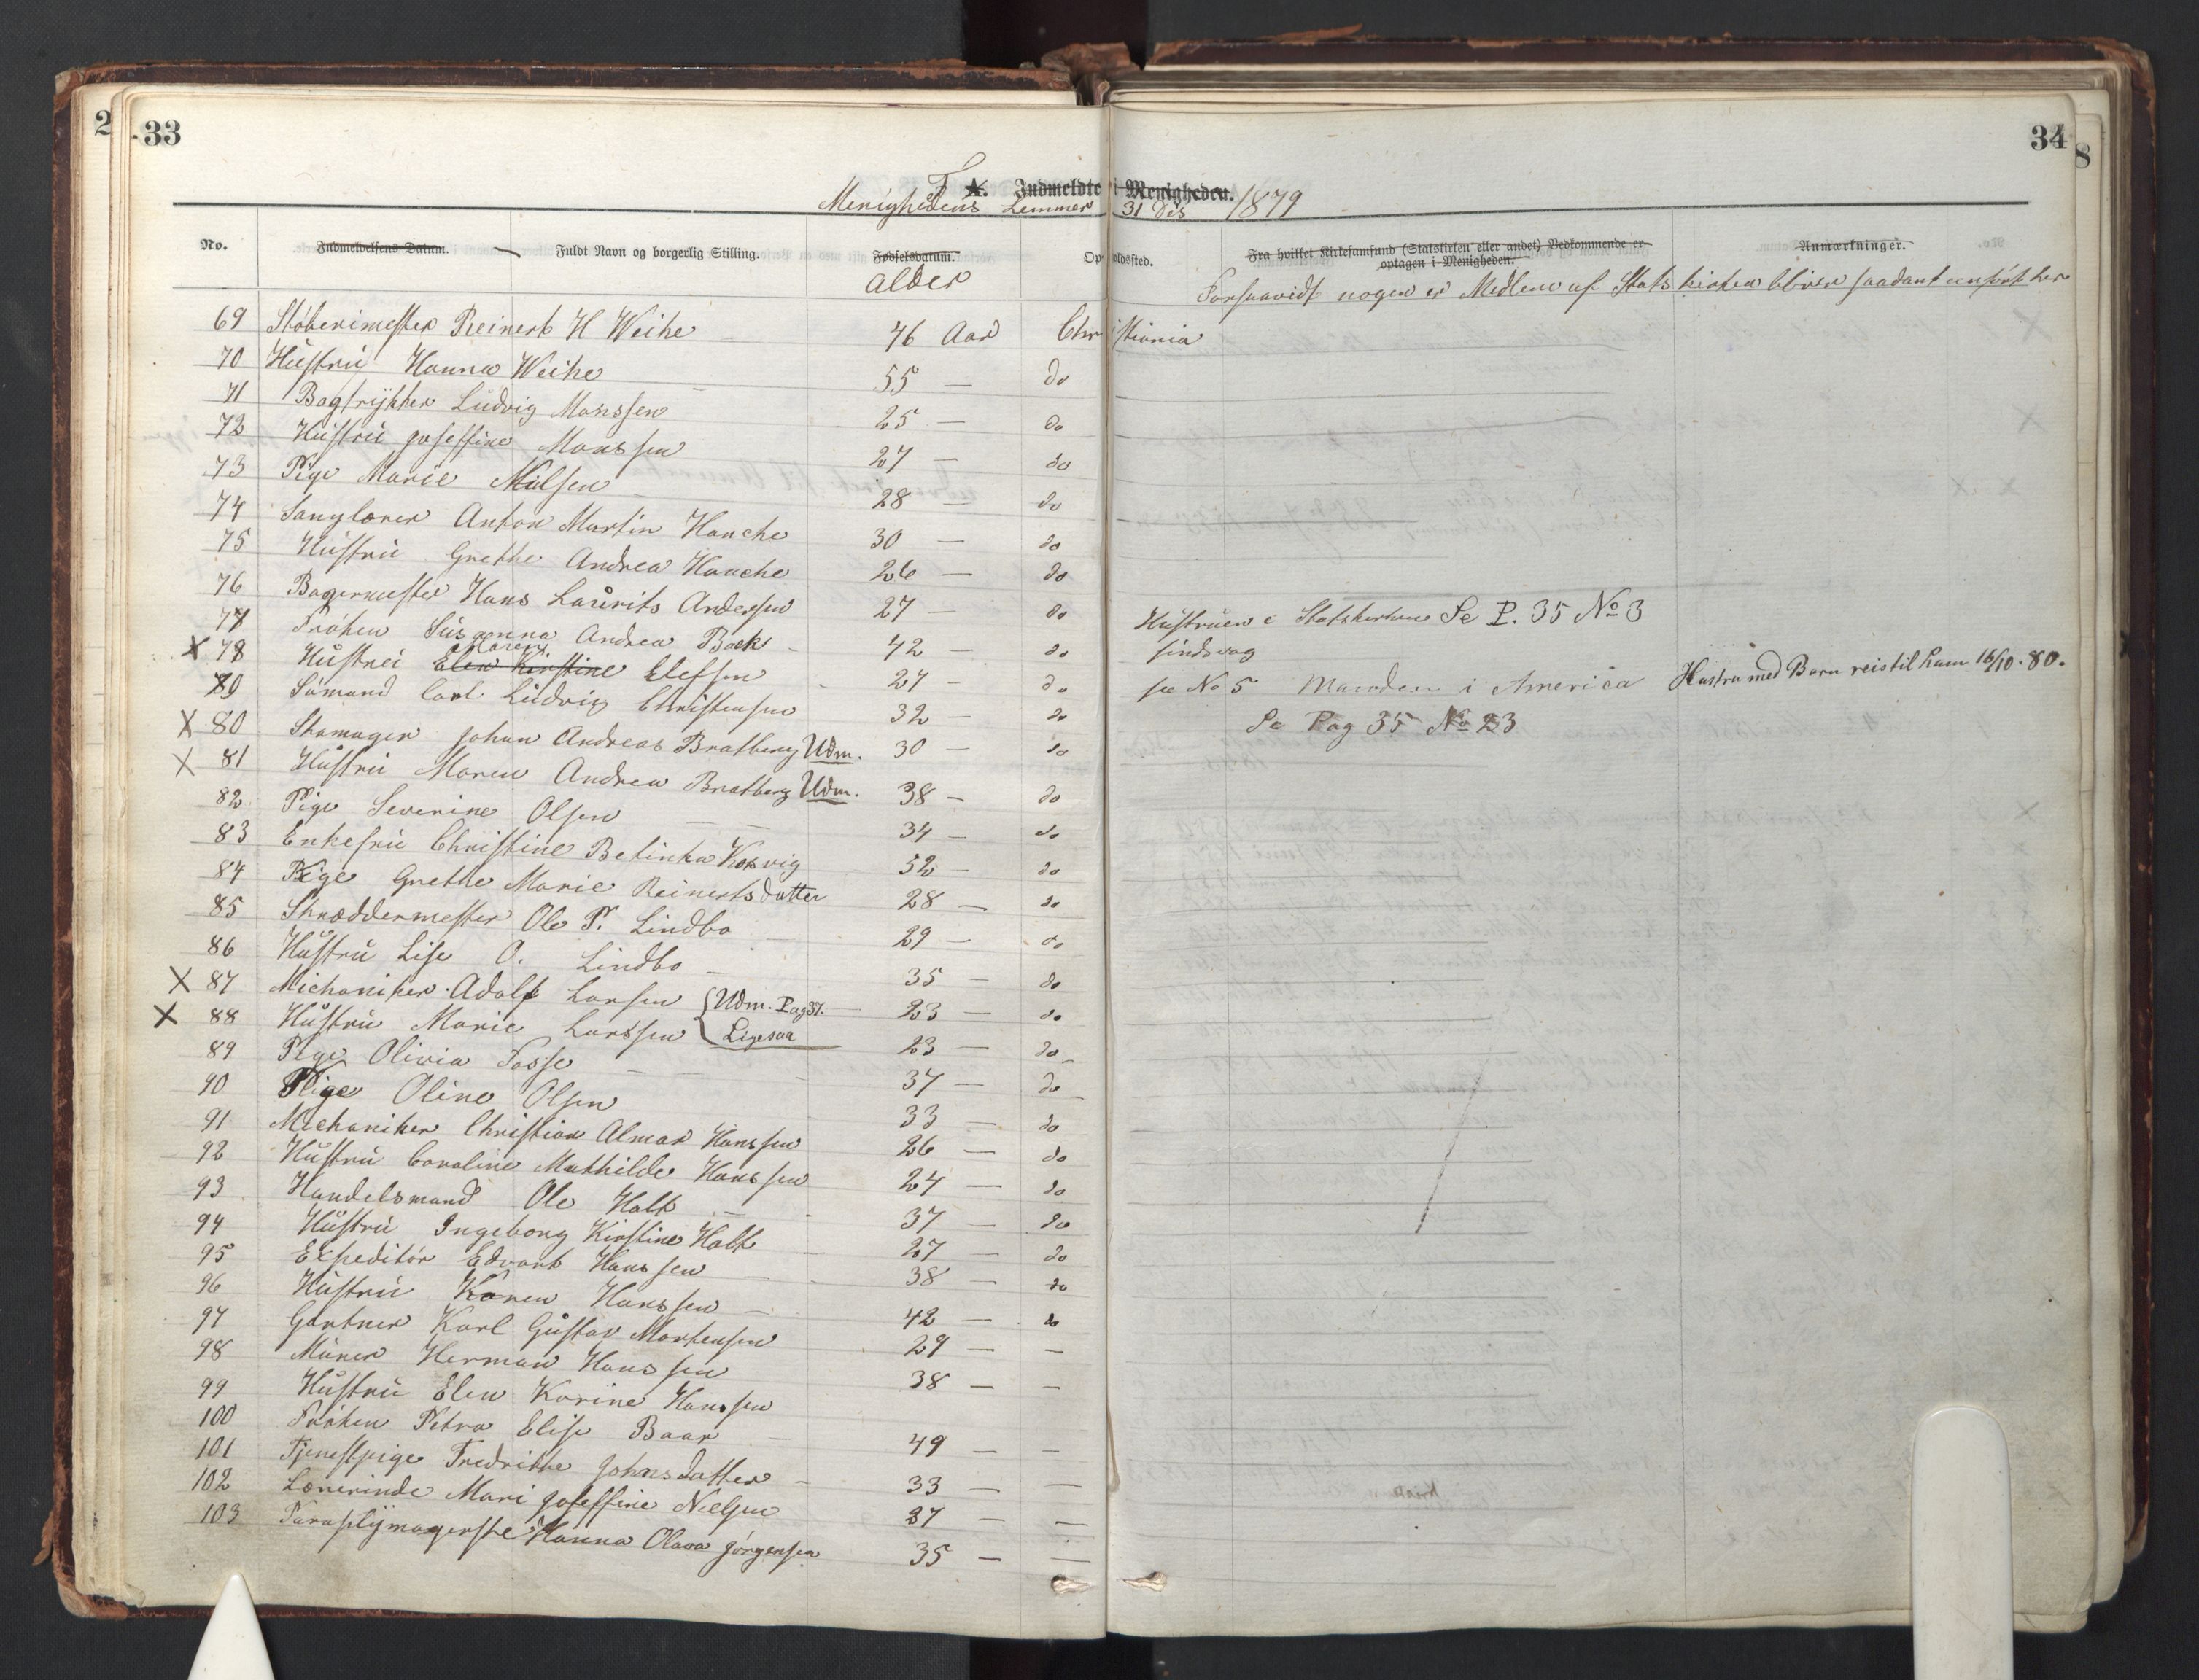 33
34
F
A. Indmeldte i Menigheden.
Menighedens Lemmer 31 Des 1879
No.
Indmeldelsens Datum.
Fuldt Navn og borgerlig Stilling.
Fødselsdatum.
alder
Opholdssted.
Fra hvilket Kirkesamfund (Statskirken eller andet) Vedkommende er
optagen i Menigheden.
Anmærkninger.
Forsaavidt nogen er Medlem af Statskirken bliver saadant anført her
69 Støberimester Reinert H Weihe 46 Aar Christiania
70 Hustru Hanna Weihe 55 — do
71 Bogtrykker Ludvig Monssen 25 — do
72 Hustru Joseffine Monssen 27 — do
73 Pige Marie Nilsen 28 — do
74 Sanglærer Anton Martin Hanche 30 — do
75 Hustru Grethe Andrea Hanche 26 — do
76 Bagermester Hans Laurits Anderssen 27 — do Hustruen i Statskirken Se P. 35 No 3
77 Frøken Susanna Andrea Bock 42 — do
X 78 Hustru Elen Kirstine Maren Elefsen 27 — do se No 5 Manden i America Hustru med Barn reis til ham 16/10. 80.
79 Sømand Carl Ludvig Christensen 32 — do Se Pag 35 No 23
X 80 Skomager Johan Andreas Bratberg Udm. 30 — do
X 81 Hustru Maren Andrea Bratberg Udm. 38 — do
82 Pige Severine Olsen 34 — do
83 Enkefru Christine Betinka Korsvig 52 — do
84 Pige Grethe Marie Reinertsdatter 28 — do
85 Skræddermester Ole P. Lindbo 29 — do
86 Hustru Lise O. Lindbo 35 — do
X 87 Michaniker Adolf Larsen { Udm. Pag 37. 23 — do
X 88 Hustru Marie Larssen Ligesaa 23 — do
89 Pige Olivia Fosse 37 — do
90 Pige Oline Olsen 33 — do
91 Michaniker Christian Almar Hanssen 26 — do
92 Hustru Caroline Mathilde Hanssen 24 — do
93 Handelsmand Ole Holt 37 — do
94 Hustru Ingeborg Kirstine Holt 27 — do
95 Expeditør Edvart Hanssen 38 — do
96 Hustru Karen Hanssen 42 — do
97 Gartner Karl Gustav Martensen 29 — —
98 Murer Herman Hanssen 38 — —
99 Hustru Elen Karine Hanssen
100 Frøken Petra Elise Baar 49 — —
101 Tjenestpige Fredrikke Johnsdatter 33 — —
102 Lærerinde Mari Joseffine Nielsen 27 — —
103 Paraplymagerske Hanna Olava Jørgensen 35 — —